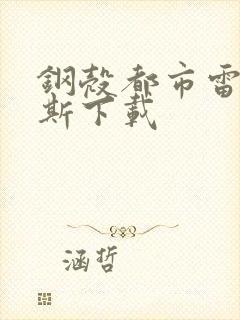 鋼殼都市雷
斯下載
涵哲